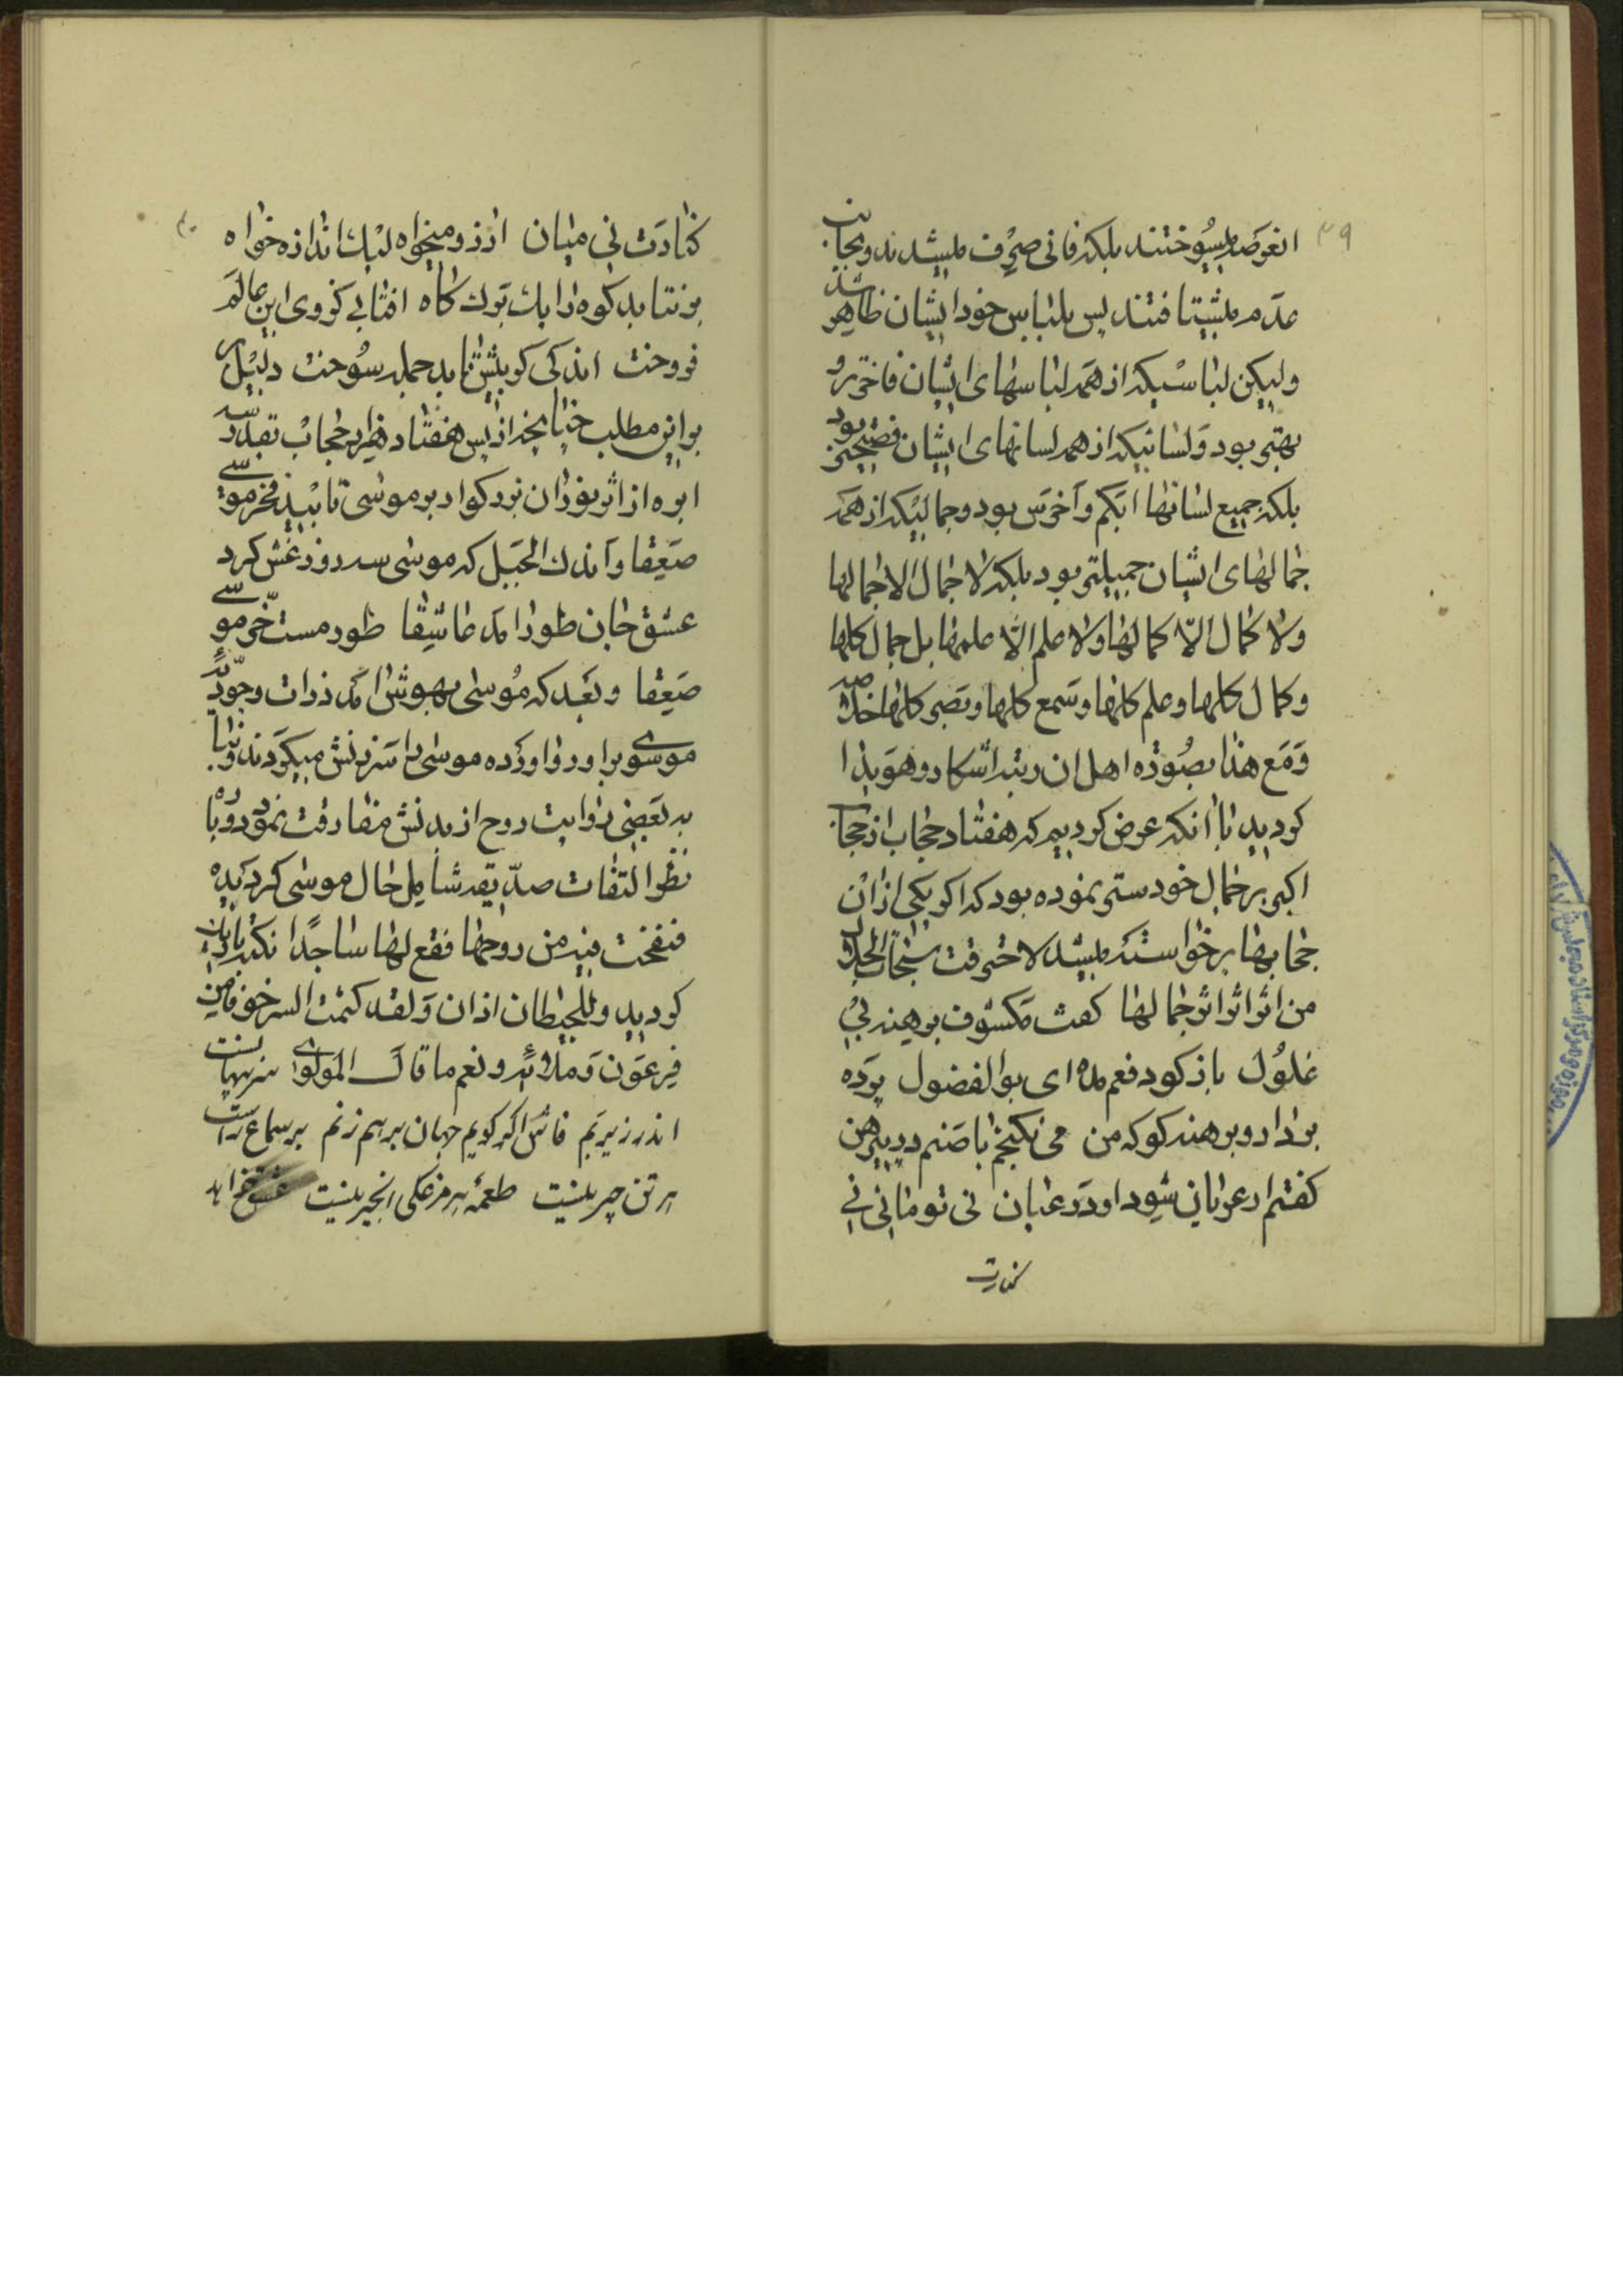 ۳۹
انعرصه میسوختند بلکه فانی صرف میشدند و بجانب
عدم میشتافتند پس بلباس خود ایشان ظاهر شد
ولیکن لباسیکه از همه لباسهای ایشان فاخرتر و
بهتر بود و لسانیکه از همه لسانهای ایشان فصیحتر بود
بلکه جمیع لسانها ابکم و آخرس بود و جمالیکه از همه
جمالهای ایشان جمیلتر بود بلکه لا جمال الا جمالها
ولا کمال الّا کمالها ولا علم الّا علمها بل جمال کلها
و کمال کلها و علم کلها و سمع کلها و بصر کلها
و مع هذا بصورة اهل ان رتبه اشکار و هویدا
کردید با انکه عرض کردیم که هفتاد حجاب از حجاب
اکبر بر جمال خود ستر نموده بود که اکر یکی از ان
حجابها برخواسته میشد لاحترقت سبحات الجلال
من اثر اثر اثر جمالها کفت مکشوف و برهنه بی
غلول بازکو دفعم مده ای بوالفضول پرده
بردار و برهنه کو که من می نکنجم با صنم در پیرهن
کفتم ار عریان شود او در عیان نی تو مانی نی
کنارت
۴۰
کنارت نی میان ارزو میخواه لیک اندازه خواه
برنتابد کوه را یک برک کاه افتابی کز وی این عالم
فروخت اندکی کر بیش تابد جمله سوخت دلیل
بر این مطلب جنابخدا از پس هفتاد هزار حجاب بقدر سر
ابره از اثر نوران بزرکوار بر موسی تابید فخر موسی
صعقا و اندک الجبل که موسی سه روز غش کرد
عشق جان طور امد عاشقا طور مست خرّ موسی
صعقا و بعد که موسی بهوش امد ذرات وجودیّه
موسوی براورد اورده موسی را سرزنش میکردند و بنا
به بعضی روایت روح از بدنش مفارقت نموده و با
نظر التفات صدّیقه شامل حال موسی کردیده
فنفخت فیه من روحها فقع لها ساجدًا نکته باریک
کردید و للحیطان اذان و لقد کتمت السر خوفا من
فرعون و ملائه و نعم ما قال المولوی سر پنهانست
اندر زیر بم فاش اکر کویم جهان برهم زنم بر سماع راست
هر تن چیر نیست طعمه هر مرغکی انجیر نیست